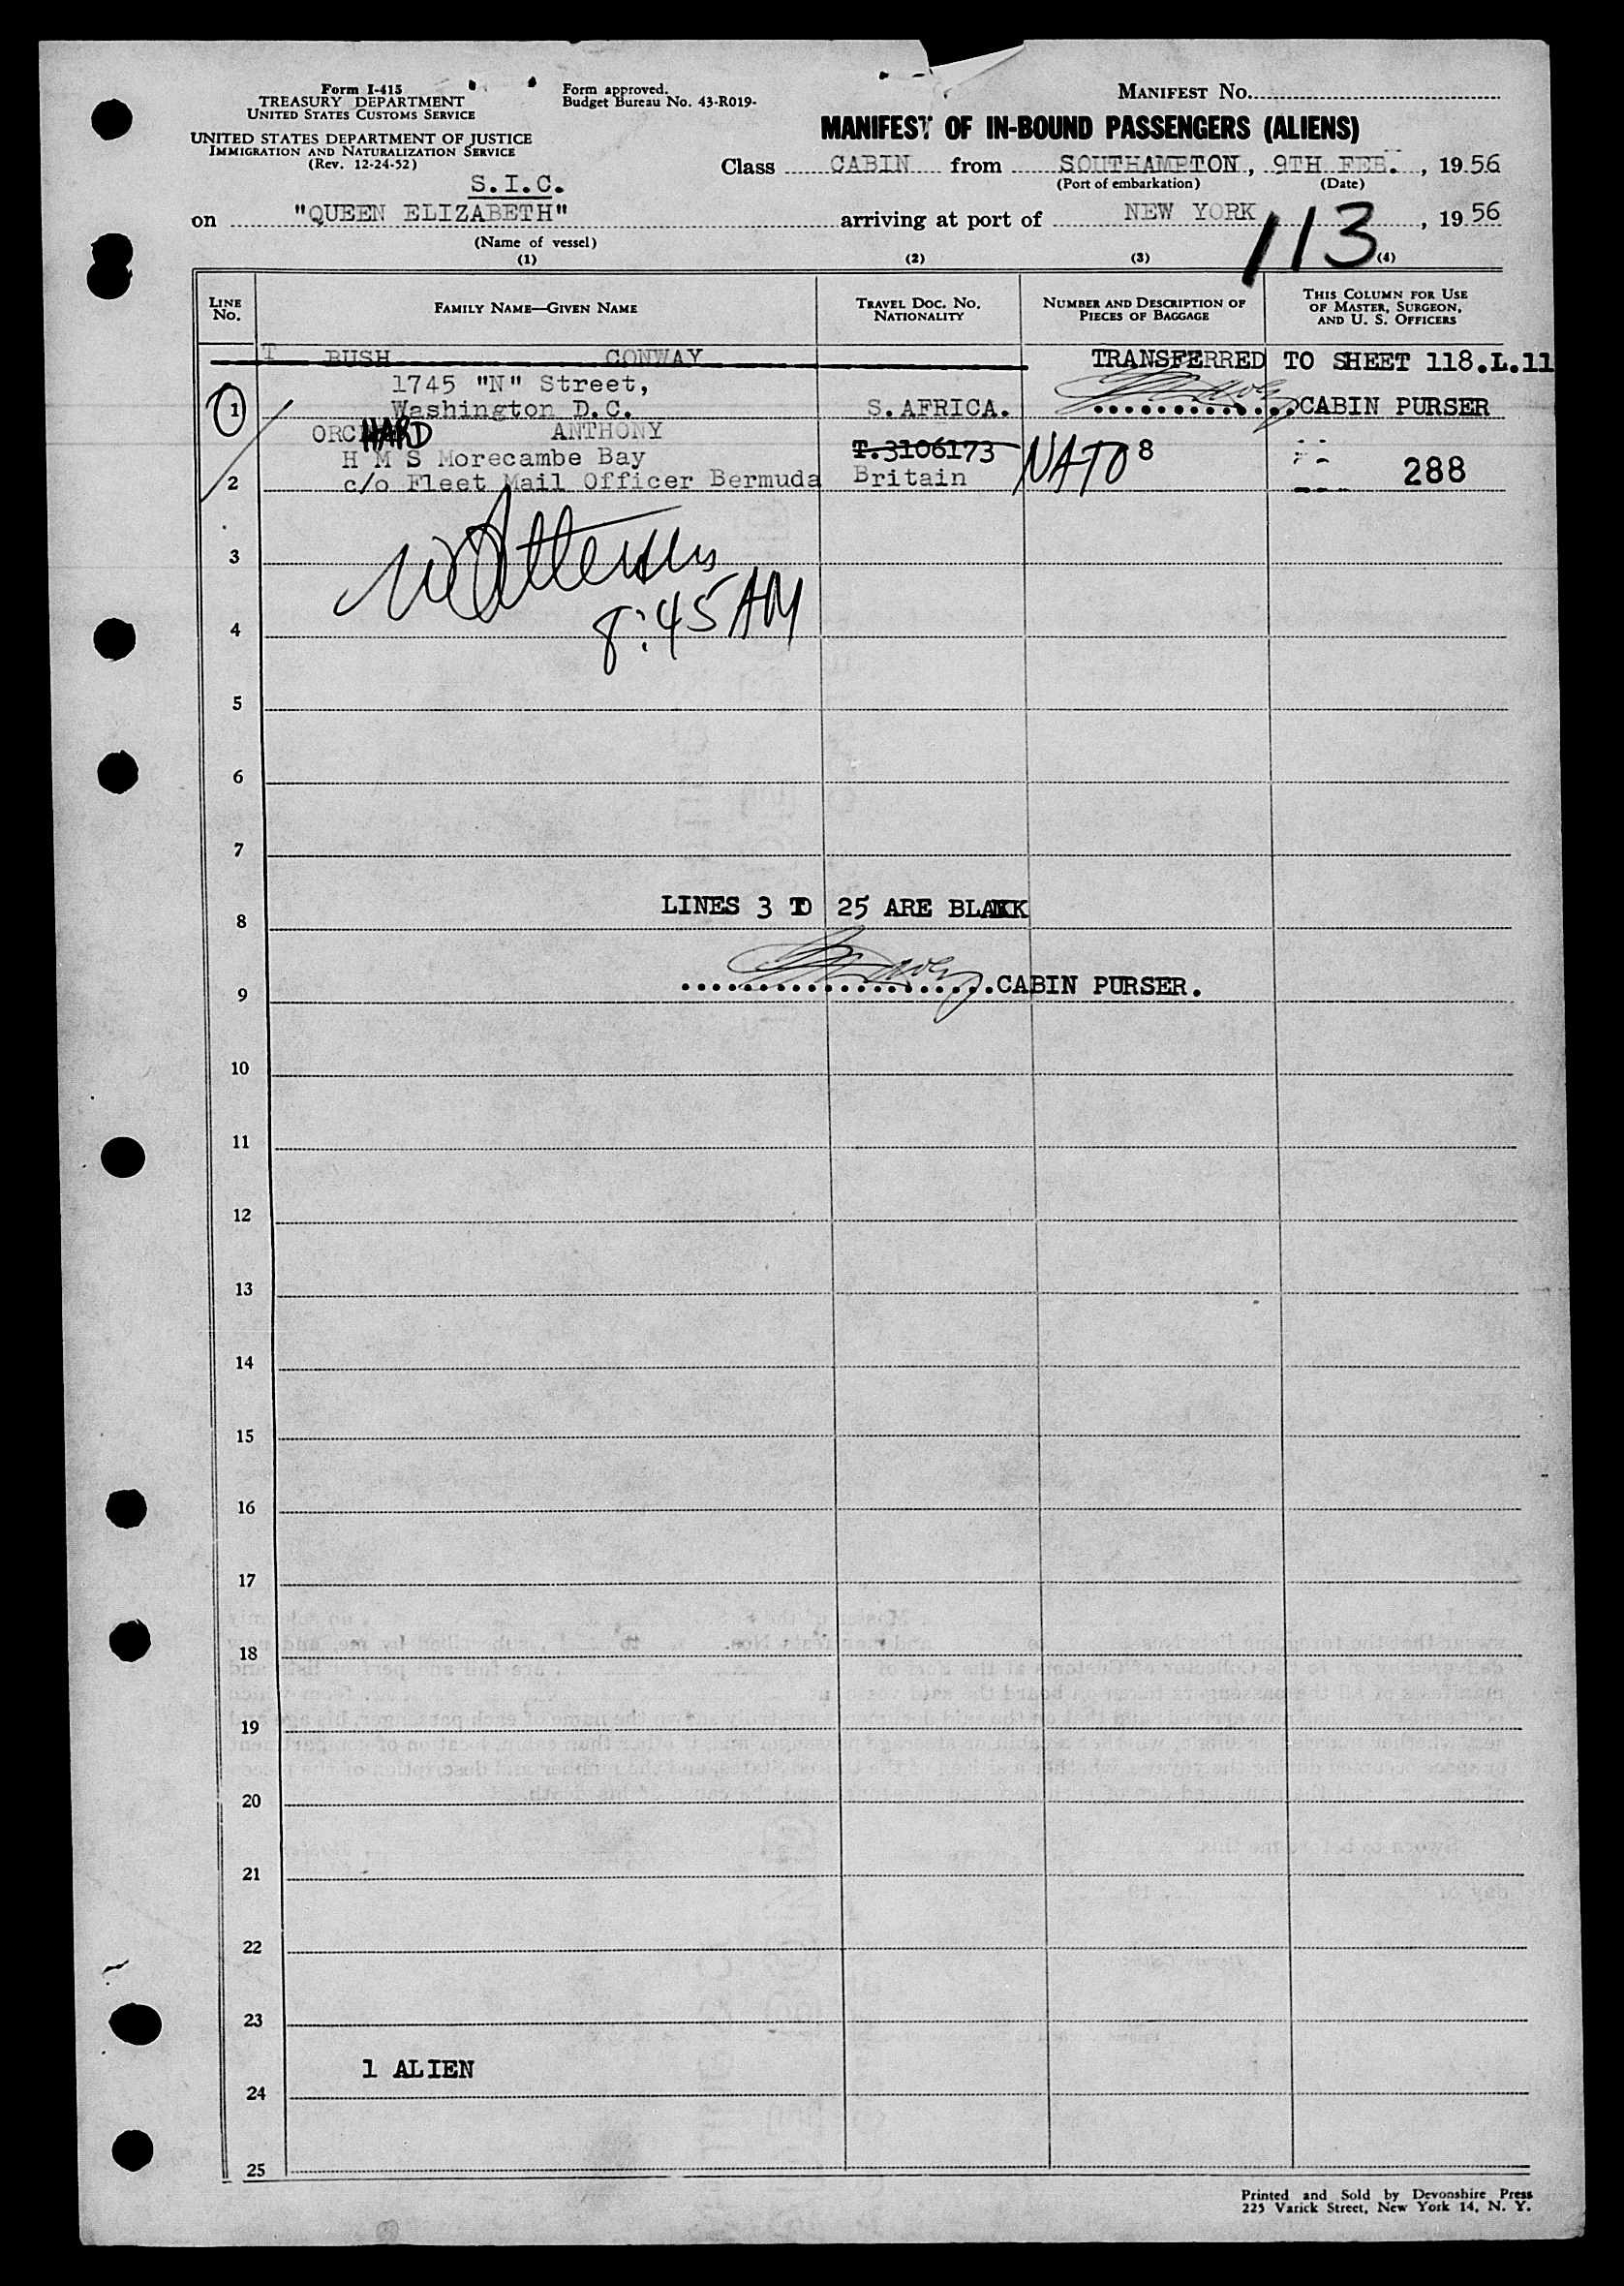 Form I-415
TREASURY DEPARTMENT
UNITED STATES CUSTOMS SERVICE
UNITED STATES DEPARTMENT OF JUSTICE
IMMIGRATION AND NATURALIZATION SERVICE
(Rev. 12-24-52)
Form approved.
Budget Bureau No. 43-R019-
MANIFEST NO.
MANIFEST OF IN-BOUND PASSENGERS (ALIENS)
Class CABIN from SOUTHAMPTON, 9TH FEB. , 1956
(Port of embarkation) (Date)
S.I.C.
on "QUEEN ELIZABETH" arriving at port of NEW YORK , 1956
(Name of vessel)
113
(1) (2) (3) (4)
LINE NO. FAMILY NAME—GIVEN NAME TRAVEL DOC. NO. NATIONALITY NUMBER AND DESCRIPTION OF PIECES OF BAGGAGE THIS COLUMN FOR USE OF MASTER, SURGEON, AND U. S. OFFICERS
T BUSH CONWAY TRANSFERRED TO SHEET 118.L.11
1745 "N" Street,
1 Washington D.C. S.AFRICA. CABIN PURSER
ORCHARD ANTHONY
H M S Morecambe Bay T.3106173 NATO 8
2 c/o Fleet Mail Officer Bermuda Britain 288
3
8:45 AM
4
5
6
7
LINES 3 TO 25 ARE BLANK
8
CABIN PURSER.
9
10
11
12
13
14
15
16
17
18
19
20
21
22
23
1 ALIEN
24
25
Printed and Sold by Devonshire Press
225 Varick Street, New York 14, N. Y.